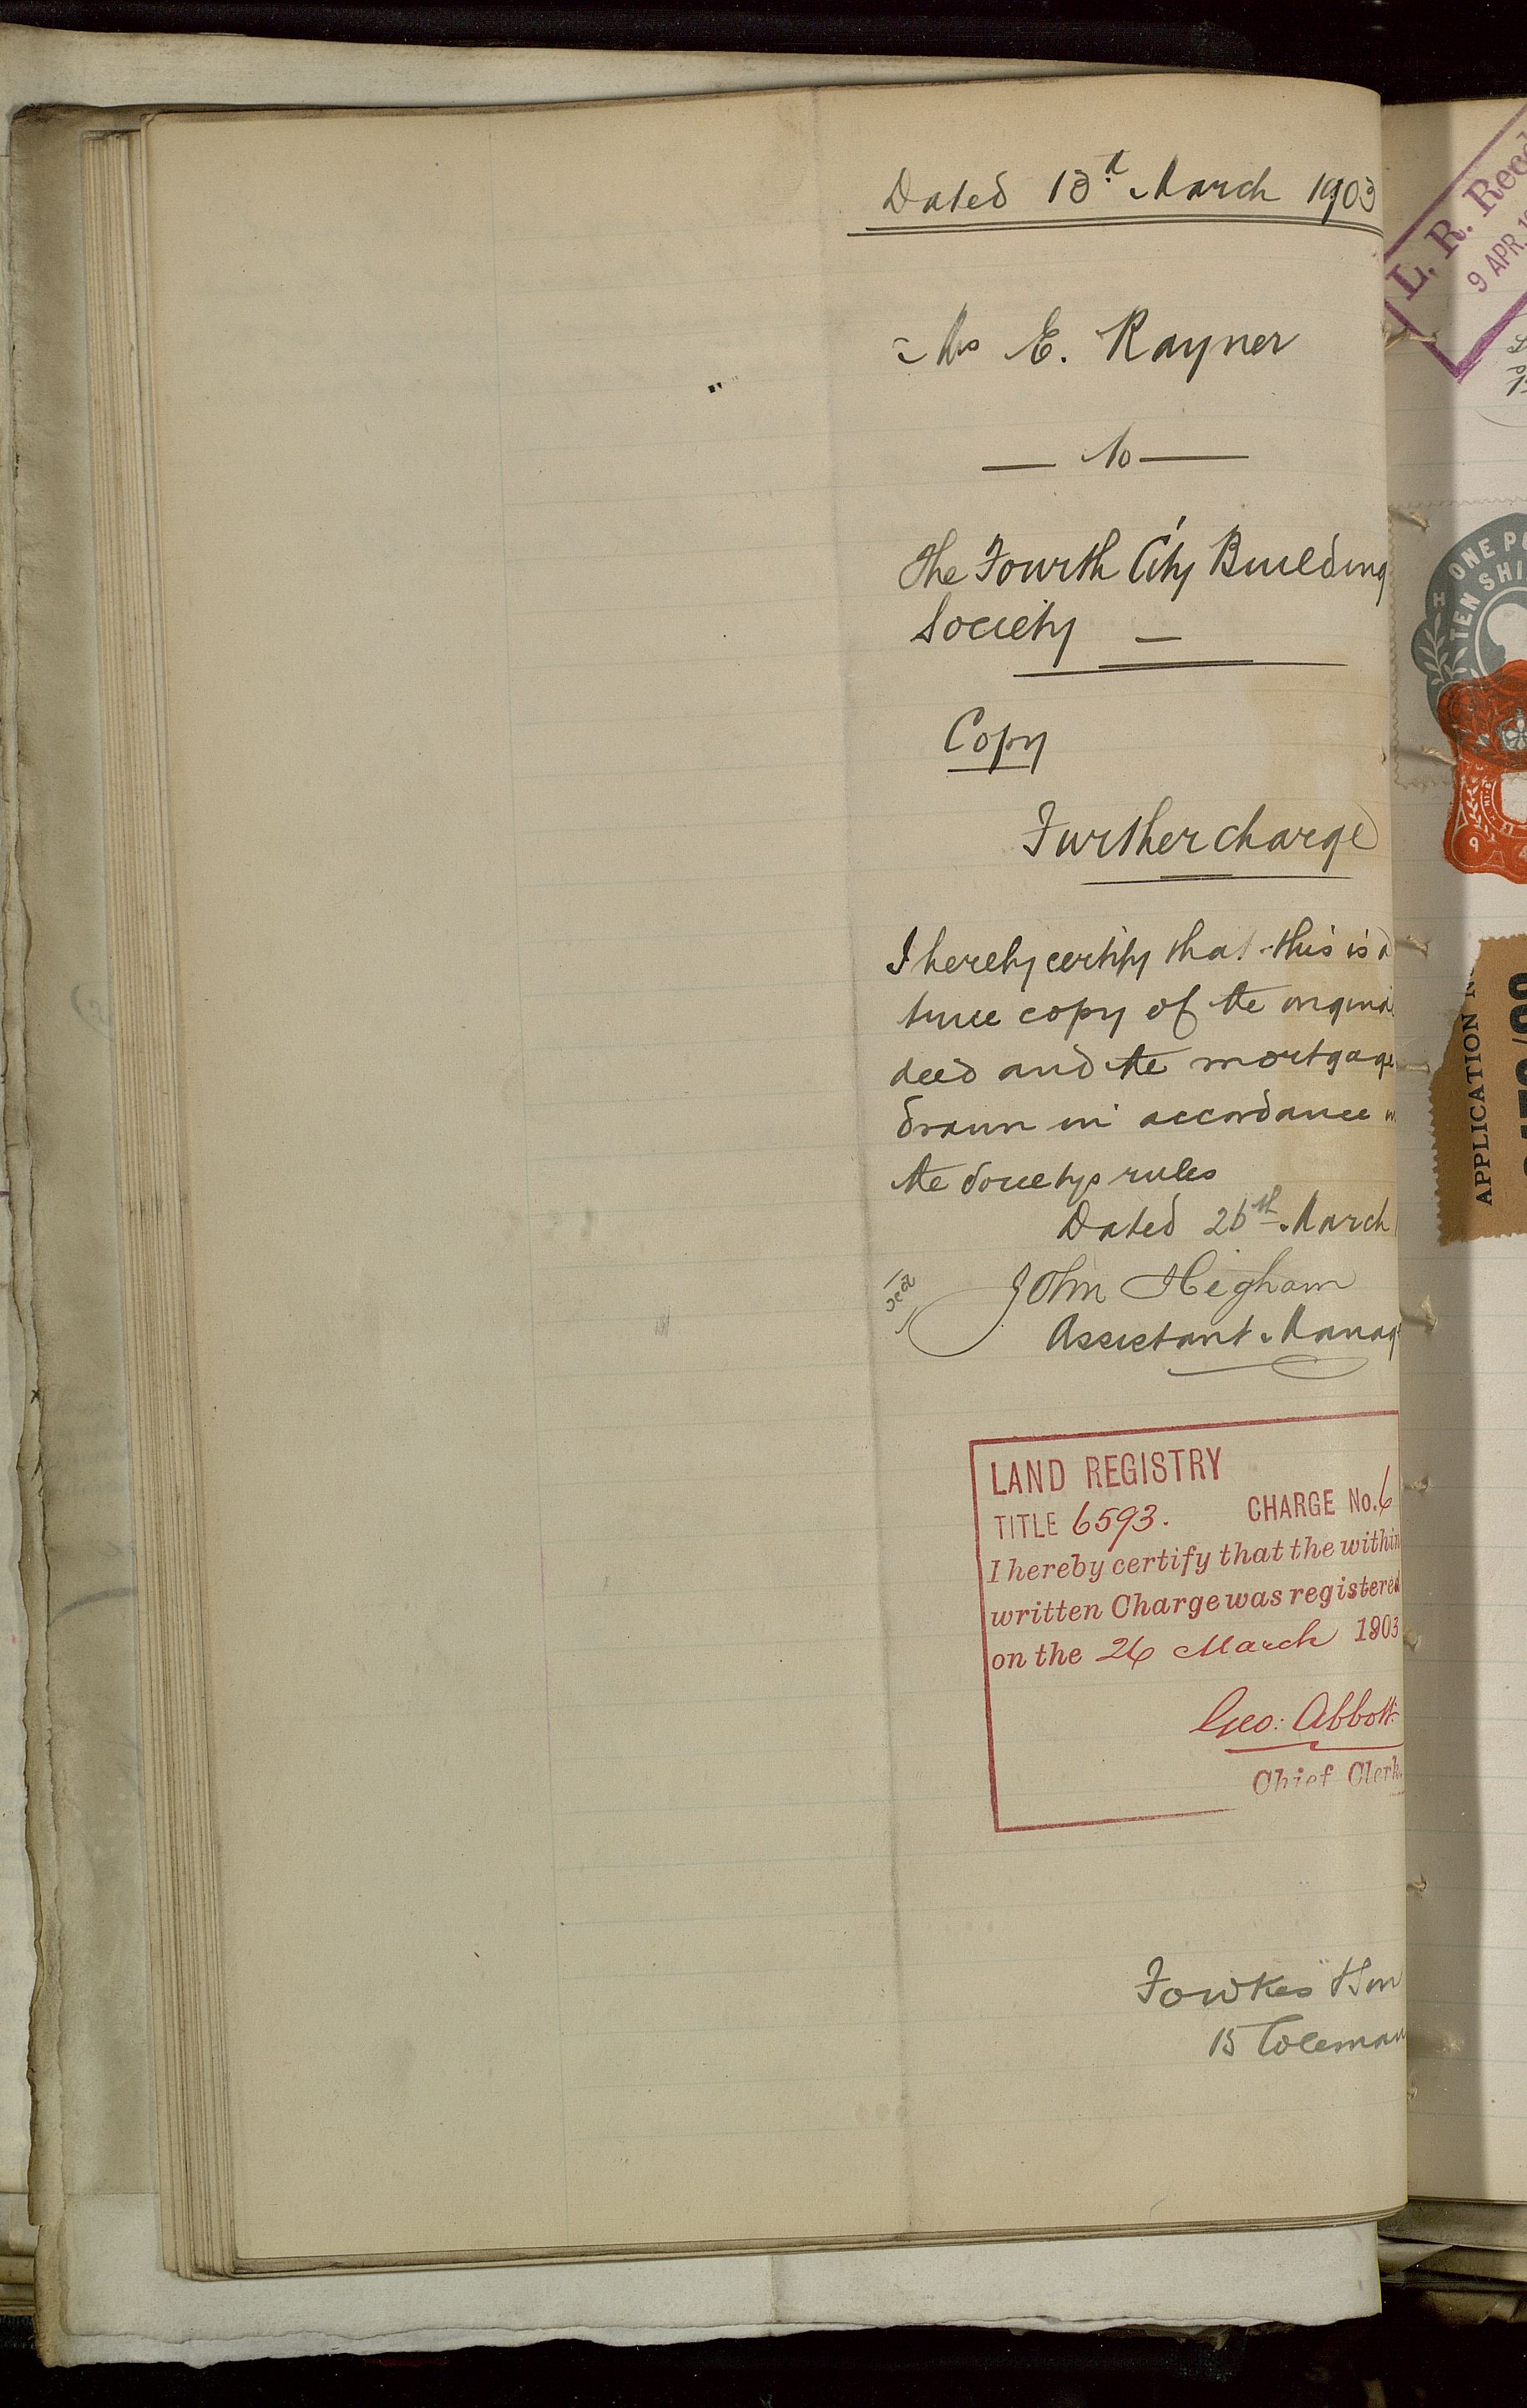 Dated 13th March 1903
Mrs E. Rayner
to
The Fourth City Building
Society
Copy
Further charge
I hereby certify that this is a
true copy of the original
deed and the mortgage
drawn in accordance
the Societys rules
Dated 26th March
John Higham
Assistant Manag
LAND REGISTRY
TITLE 6593. CHARGE No. 6
I hereby certify that the within
written Charge was registered
on the 26 March 1903
Geo: Abbott
Chief Clerk.
Fowkes & Son
15 Coleman
L. R. Recd
9 APR.
ONE PO
TEN SHI
APPLICATION N